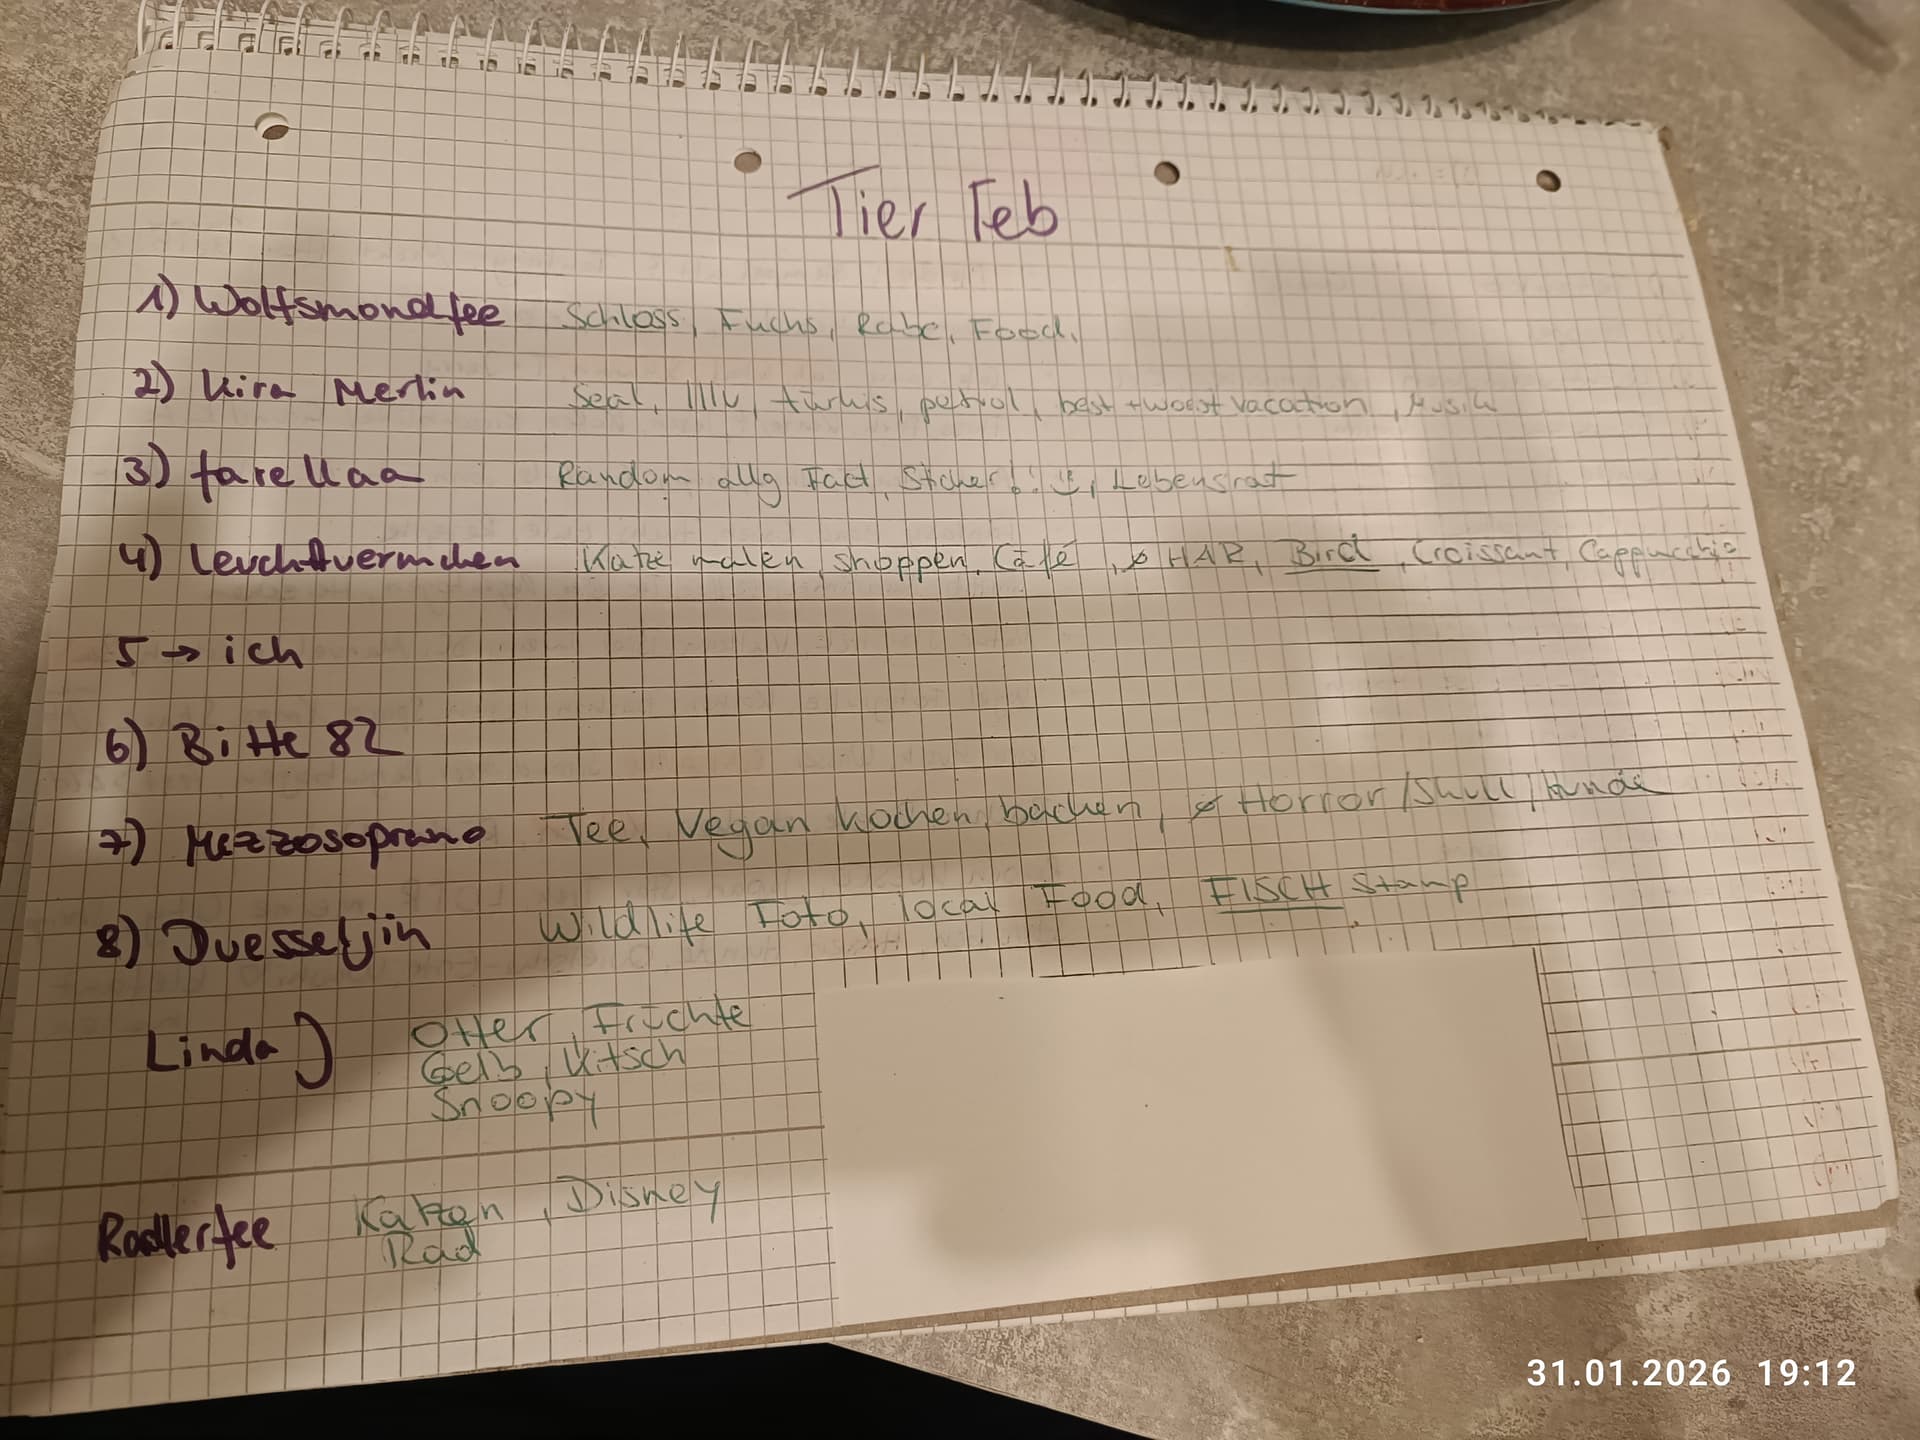 Tier Feb
1) Wolfsmondfee Schloss, Fuchs, Rabe, Food,
2) Kira Merlin Seal, türkis, petrol, best + worst vacation, Musik
3) farellaa Random allg Fact, Sticker!, Lebensrat
4) Katze malen, shoppen, Café, HAR, Bird, Croissant, Cappuccino
5 → ich
6) Bitte 82
7) Mezzosoprano Tee, Vegan kochen, backen, Horror/Skull/Hunde
8) Duesseljin Wildlife Foto, local Food, FISCH Stamp
Linda) Otter, Früchte
Gelb, Kitsch
Snoopy
Radlerfee Katzen, Disney
Rad
31.01.2026 19:12